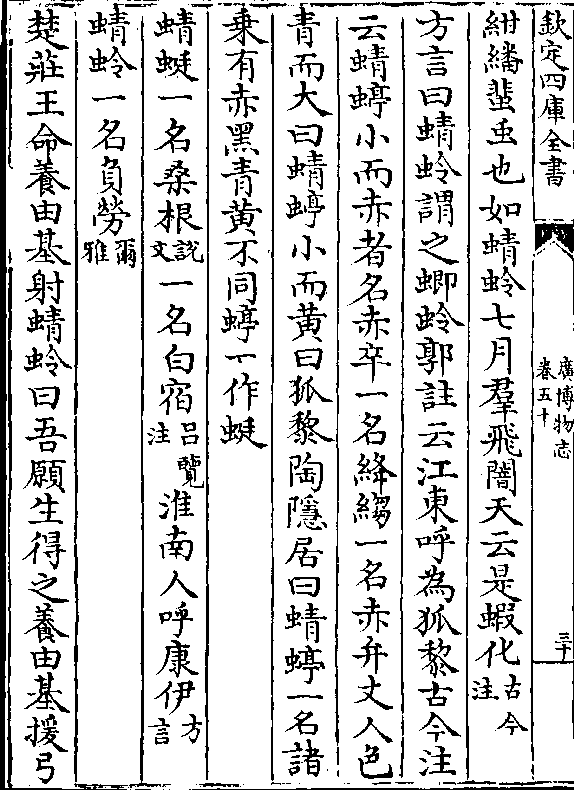 欽定四庫全書
廣博物志
卷五十
三十
紺繙蜚䖝也如蜻蛉七月羣飛闇天云是蝦化古今
注
方言曰蜻蛉謂之蝍蛉郭註云江東呼為狐黎古今注
云蜻蝏小而赤者名赤卒一名絳縐一名赤弁丈人色
青而大曰蜻蝏小而黄曰狐黎陶隱居曰蜻蝏一名諸
乗有赤黑青黄不同蝏一作蜓
蜻蜓一名桑根說
文一名白宿呂覽
注淮南人呼康伊方
言
蜻蛉一名負勞爾
雅
楚莊王命養由基射蜻蛉曰吾願生得之養由基援弓